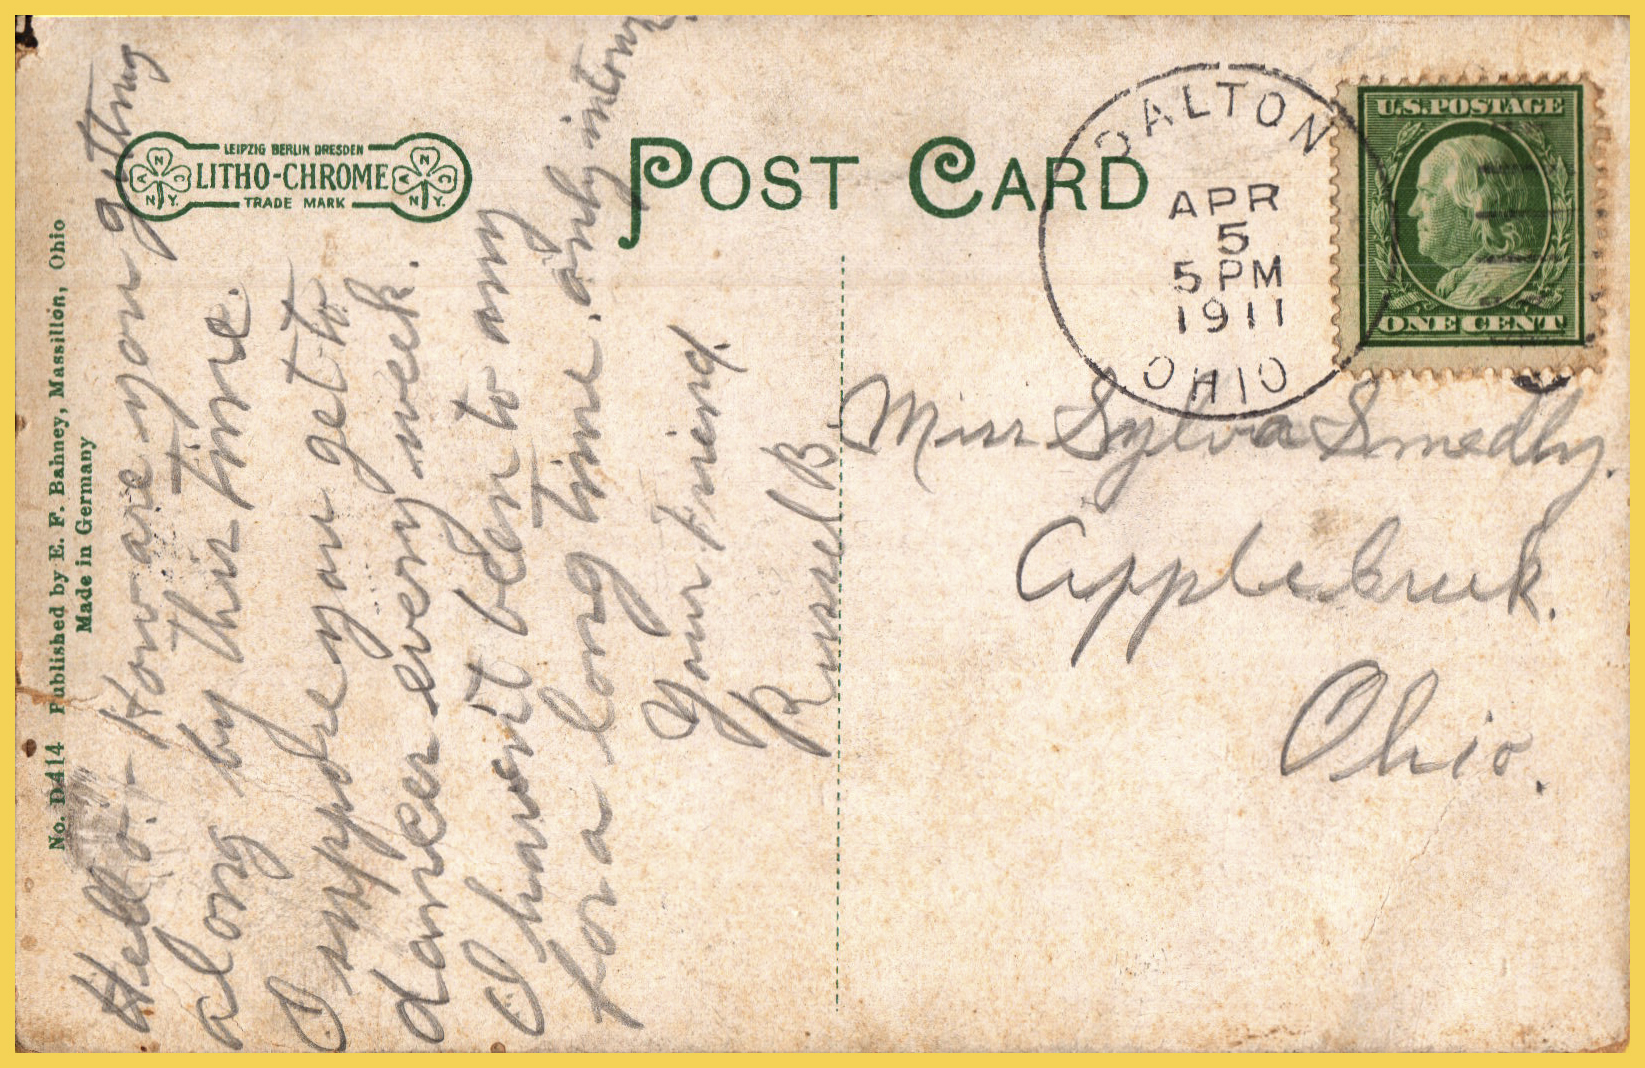 No. D414 Published by E. F. Bahney, Massillon, Ohio
Made in Germany
LEIPZIG BERLIN DRESDEN
LITHO-CHROME
TRADE MARK
A N C
N.Y.
A N C
N.Y.
POST CARD
DALTON
APR
5
5 PM
1911
OHIO
U.S. POSTAGE
ONE CENT
Hello.- How are you getting
along by this time.
I suppose you get to
dances every week.
I havent been to any
for a long time. only in town.
Your Friend.
Russel B.
Miss Sylvia Smedly.
Applecreek.
Ohio.